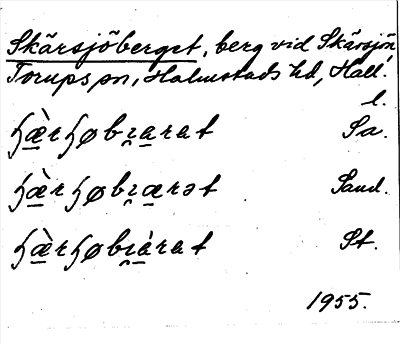 Skärsjöberget, berg vid Skärsjön,
Torups sn, Halmstads hd, Hall.
l.
ɧæ̀rɧøbɪarat Sa.
ɧæ̀rɧøbɪærət Sand.
ɧæ̀rɧøbɪàrat St.
1955.